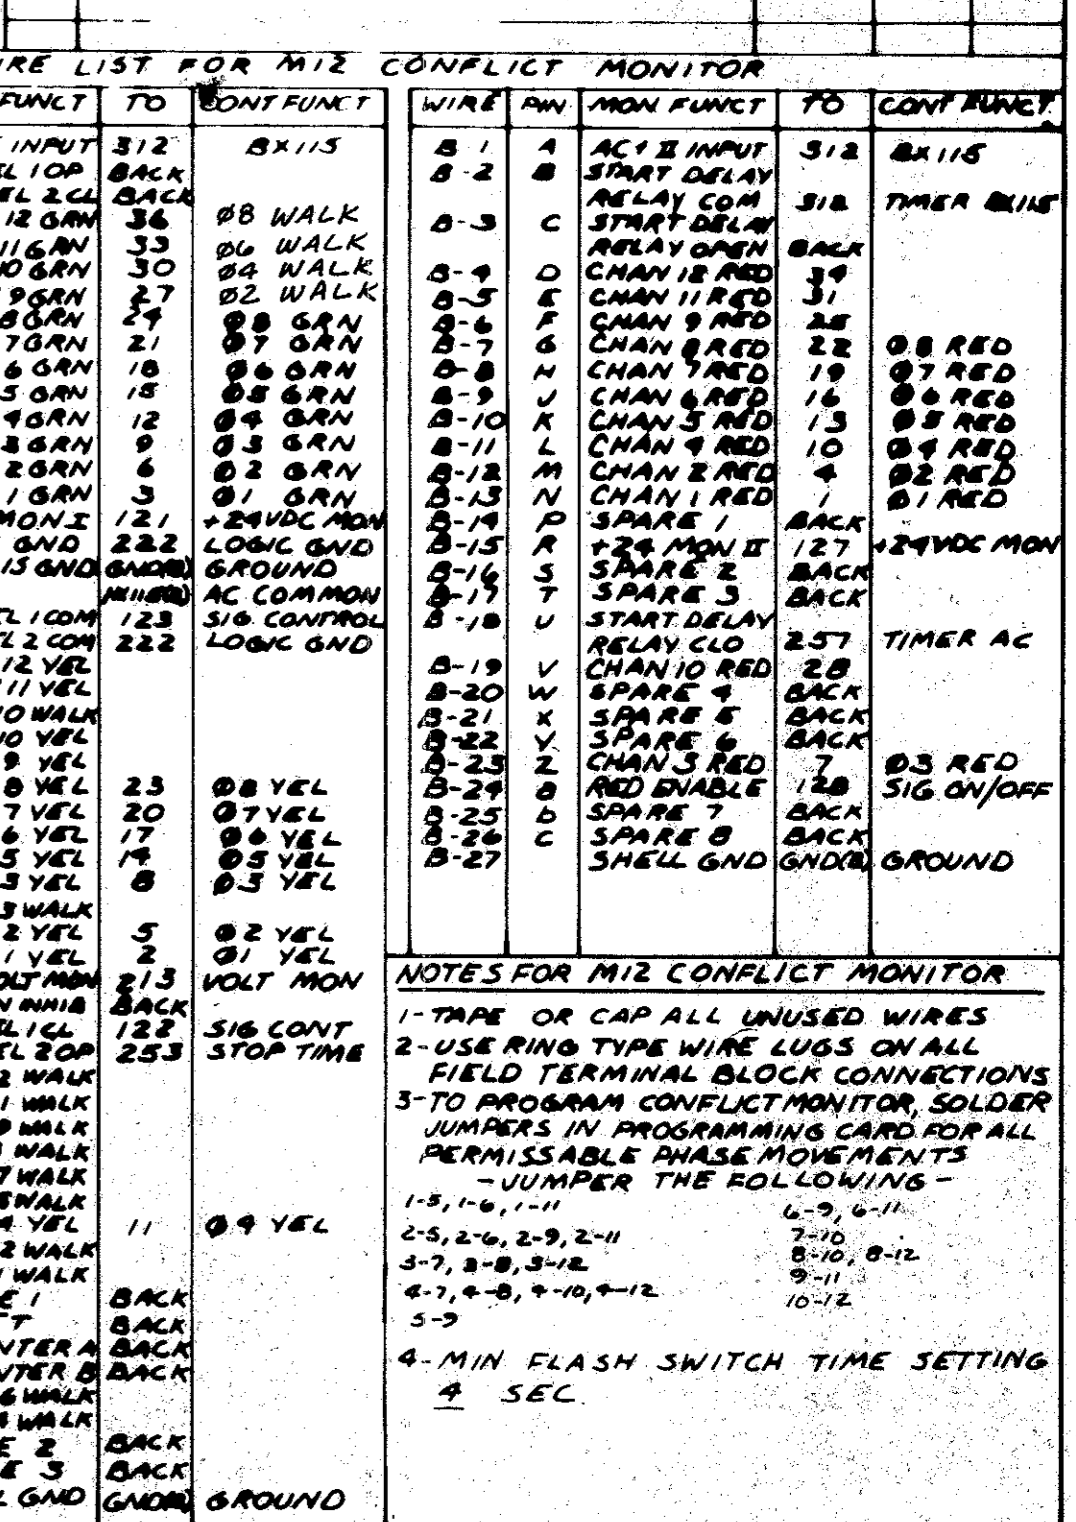 IRE LIST FOR M12 CONFLICT MONITOR
FUNCT TO CONT FUNCT
INPUT 312 BX115
EL 1 OP BACK
EL 2 CL BACK
12 GRN 36 Ø8 WALK
11 GRN 33 Ø6 WALK
10 GRN 30 Ø4 WALK
9 GRN 27 Ø2 WALK
8 GRN 24 Ø8 GRN
7 GRN 21 Ø7 GRN
6 GRN 18 Ø6 GRN
5 GRN 15 Ø5 GRN
4 GRN 12 Ø4 GRN
3 GRN 9 Ø3 GRN
2 GRN 6 Ø2 GRN
1 GRN 3 Ø1 GRN
MON I 121 +24VDC MON
GND 222 LOGIC GND
IS GND GND(B) GROUND
AC COMMON
EL 1 COM 123 SIG CONTROL
EL 2 COM 222 LOGIC GND
12 YEL
11 YEL
10 WALK
10 YEL
9 YEL
8 YEL 23 Ø8 YEL
7 YEL 20 Ø7 YEL
6 YEL 17 Ø6 YEL
5 YEL 14 Ø5 YEL
3 YEL 8 Ø3 YEL
3 WALK
2 YEL 5 Ø2 YEL
1 YEL 2 Ø1 YEL
OLT MON 213 VOLT MON
N INHIB BACK
EL 1 CL 122 SIG CONT
EL 2 OP 253 STOP TIME
2 WALK
1 WALK
9 WALK
WALK
7 WALK
5 WALK
4 YEL 11 Ø4 YEL
2 WALK
1 WALK
E 1 BACK
T BACK
NTER A BACK
NTER B BACK
6 WALK
4 WALK
E 2 BACK
E 3 BACK
L GND GND(B) GROUND
WIRE PIN MON FUNCT TO CONT FUNCT
B 1 A AC+ II INPUT 312 BX115
B-2 B START DELAY
RELAY COM 312 TIMER BX115
B-3 C START DELAY
RELAY OPEN BACK
B-4 D CHAN 12 RED 34
B-5 E CHAN 11 RED 31
B-6 F CHAN 9 RED 25
B-7 G CHAN 8 RED 22 Ø8 RED
B-8 H CHAN 7 RED 19 Ø7 RED
B-9 J CHAN 6 RED 16 Ø6 RED
B-10 K CHAN 5 RED 13 Ø5 RED
B-11 L CHAN 4 RED 10 Ø4 RED
B-12 M CHAN 2 RED 4 Ø2 RED
B-13 N CHAN 1 RED 1 Ø1 RED
B-14 P SPARE 1 BACK
B-15 R +24 MON II 127 +24VDC MON
B-16 S SPARE 2 BACK
B-17 T SPARE 3 BACK
B-18 U START DELAY
RELAY CLO 257 TIMER AC
B-19 V CHAN 10 RED 28
B-20 W SPARE 4 BACK
B-21 X SPARE 5 BACK
B-22 Y SPARE 6 BACK
B-23 Z CHAN 3 RED 7 Ø3 RED
B-24 a RED ENABLE 128 SIG ON/OFF
B-25 b SPARE 7 BACK
B-26 C SPARE 8 BACK
B-27 SHELL GND GND(B) GROUND
NOTES FOR M12 CONFLICT MONITOR
1-TAPE OR CAP ALL UNUSED WIRES
2-USE RING TYPE WIRE LUGS ON ALL
FIELD TERMINAL BLOCK CONNECTIONS
3-TO PROGRAM CONFLICT MONITOR, SOLDER
JUMPERS IN PROGRAMMING CARD FOR ALL
PERMISSABLE PHASE MOVEMENTS
-JUMPER THE FOLLOWING-
1-5, 1-6, 1-11
2-5, 2-6, 2-9, 2-11
3-7, 3-8, 3-12
4-7, 4-8, 4-10, 4-12
5-9
6-9, 6-11
7-10
8-10, 8-12
9-11
10-12
4-MIN FLASH SWITCH TIME SETTING
4 SEC.